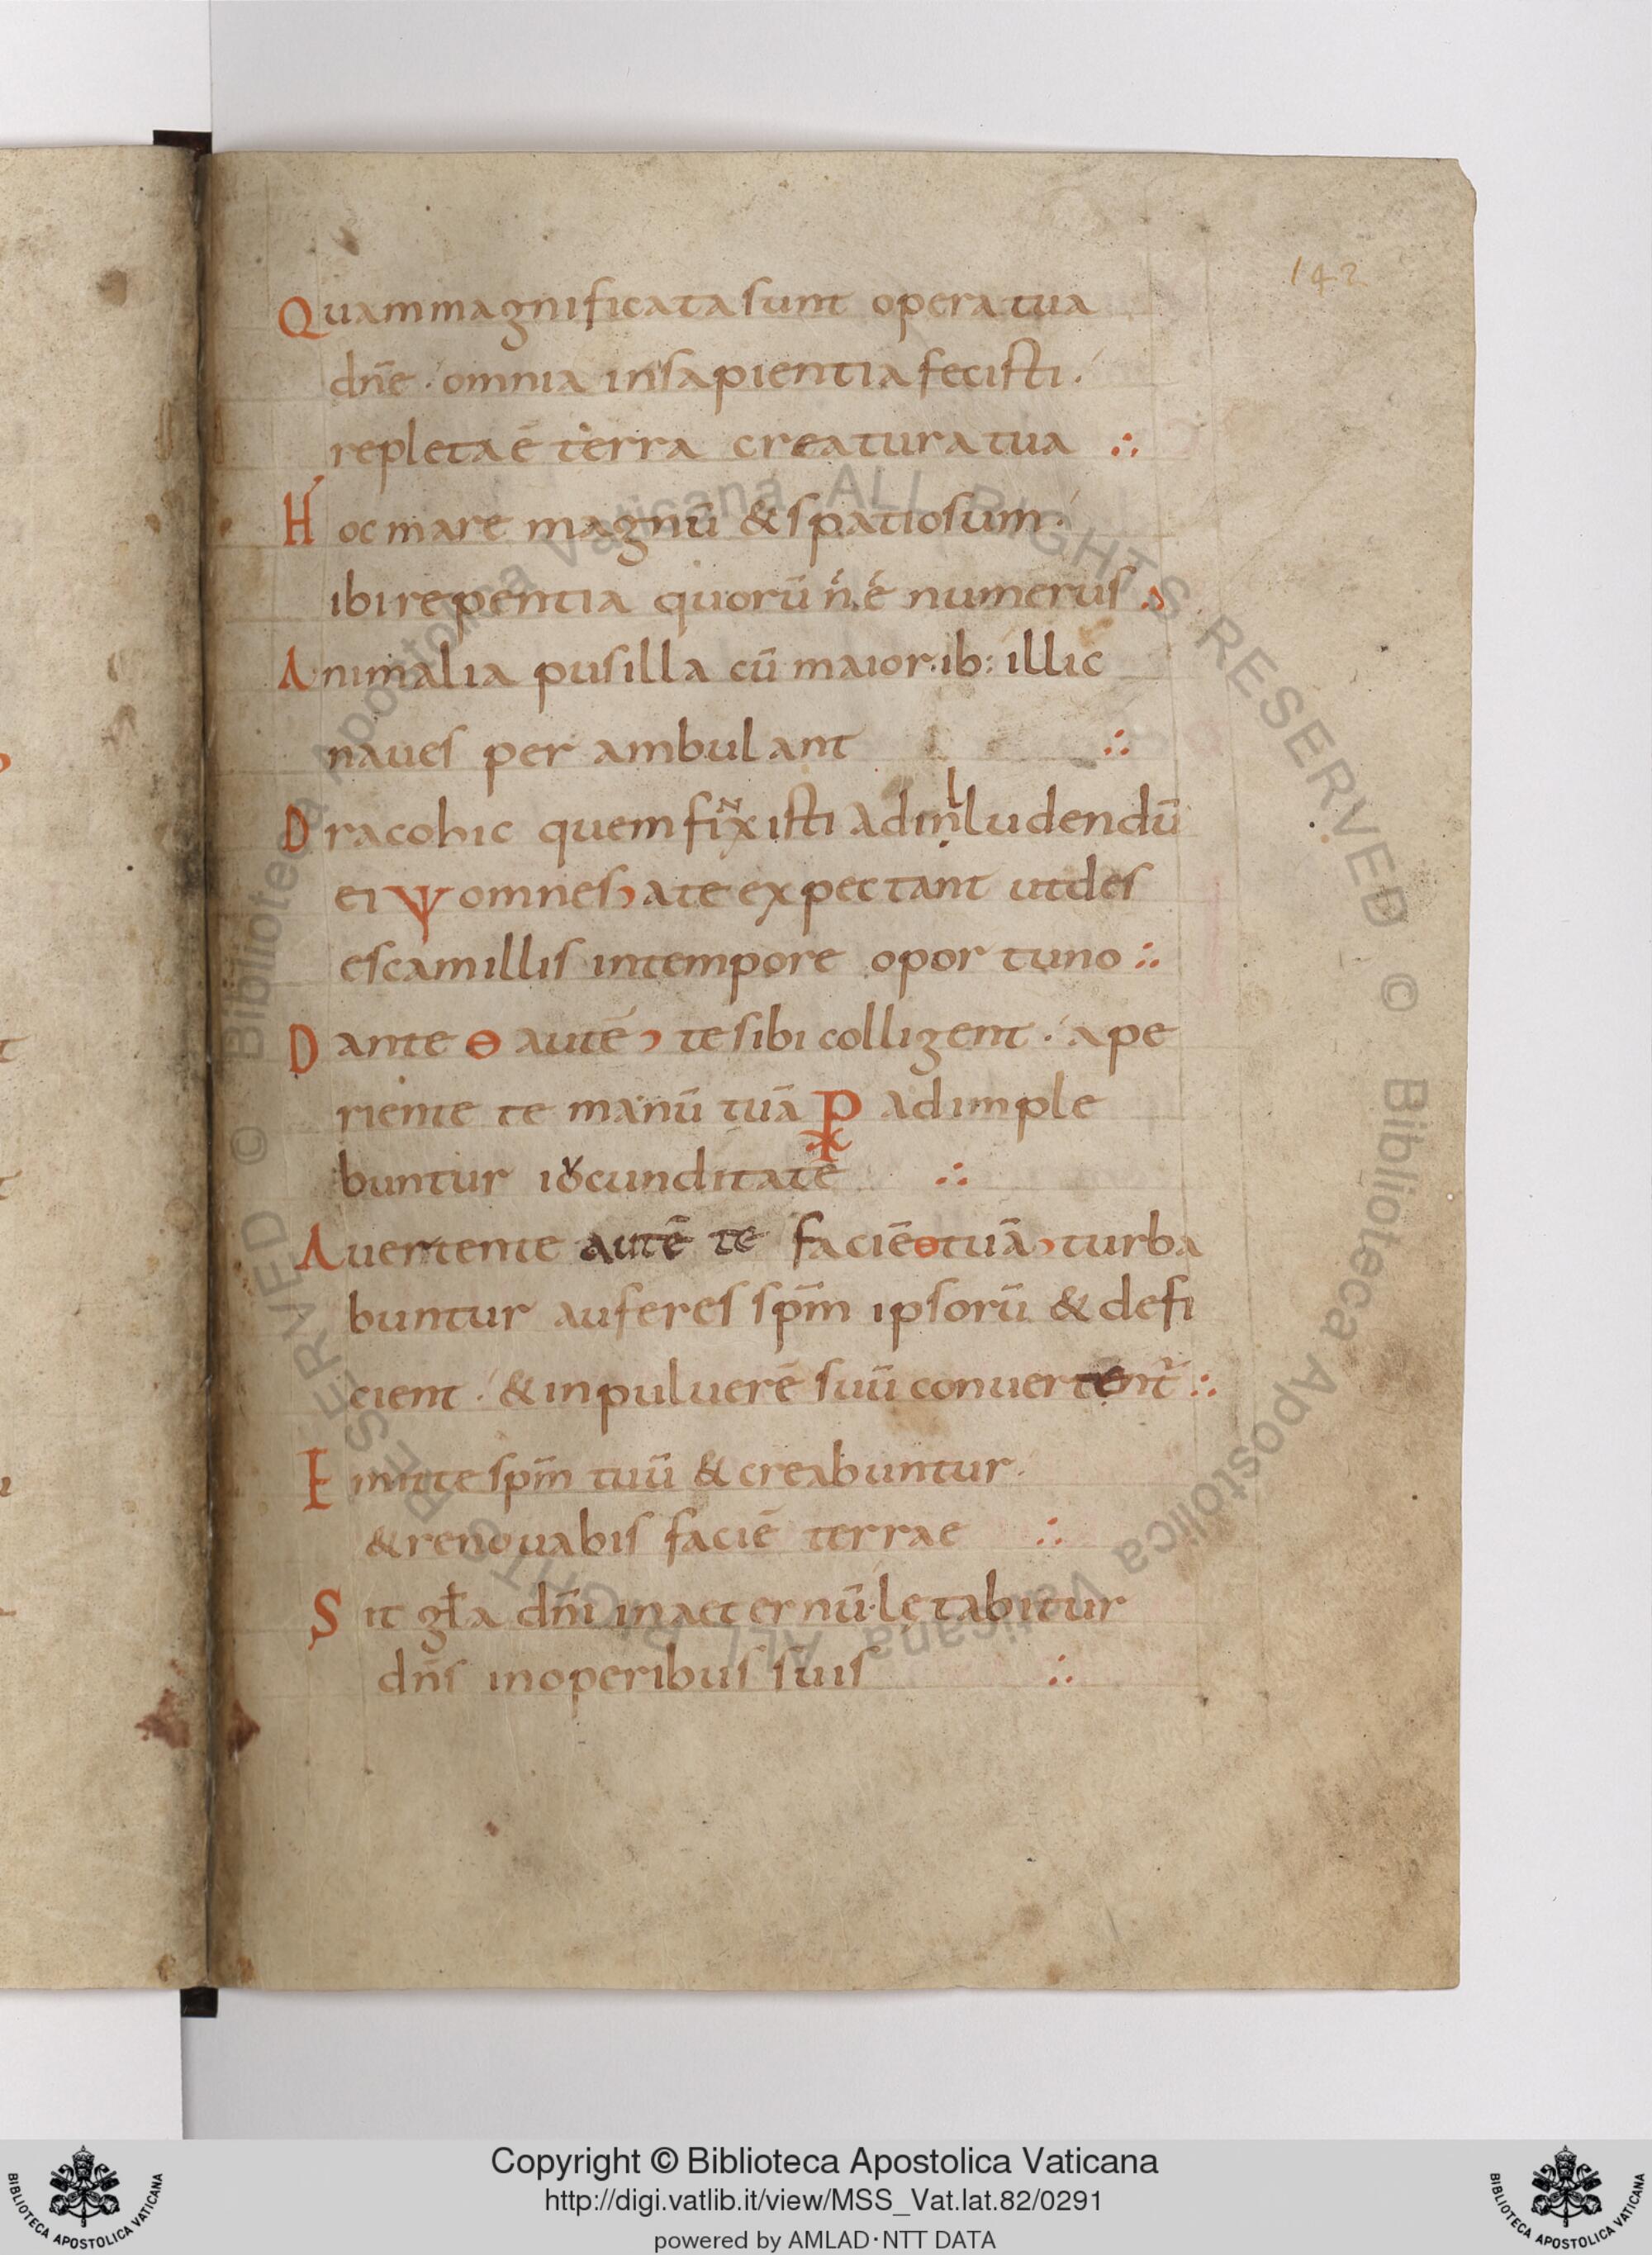 142
Quam magnificata sunt opera tua
dn̄e · omnia in sapientia fecisti ·
repleta ē terra creatura tua ∴
Hoc mare magnū & spatiosum ·
ibi repentia quorū ń· é numerus ·
Animalia pusilla cū maiorib: illic
naues per ambulant ∴
Draco hic quem finxisti ad inludendū
ei ψ omnes ate expectant ut des
escam illis in tempore oportuno ∴
Dante Θ autē te sibi colligent · ape
riente te manū tuā ⳩ adimple
buntur iocunditate ∴
Auertente autē te faciē Θ tuā turba
buntur auferes spm̄ ipsorū & defi
cient · & in puluerē suū conuertent̄ ∴
Emitte spm̄ tuū & creabuntur ·
& renouabis faciē terrae ∴
Sit gl̄a dn̄i in aeternū · lętabitur
dn̄s in operibus suis ∴
© Biblioteca Apostolica Vaticana ALL RIGHTS RESERVED © Biblioteca Apostolica Vaticana ALL RIGHTS RESERVED
Copyright © Biblioteca Apostolica Vaticana
http://digi.vatlib.it/view/MSS_Vat.lat.82/0291
powered by AMLAD·NTT DATA
BIBLIOTECA APOSTOLICA VATICANA
BIBLIOTECA APOSTOLICA VATICANA